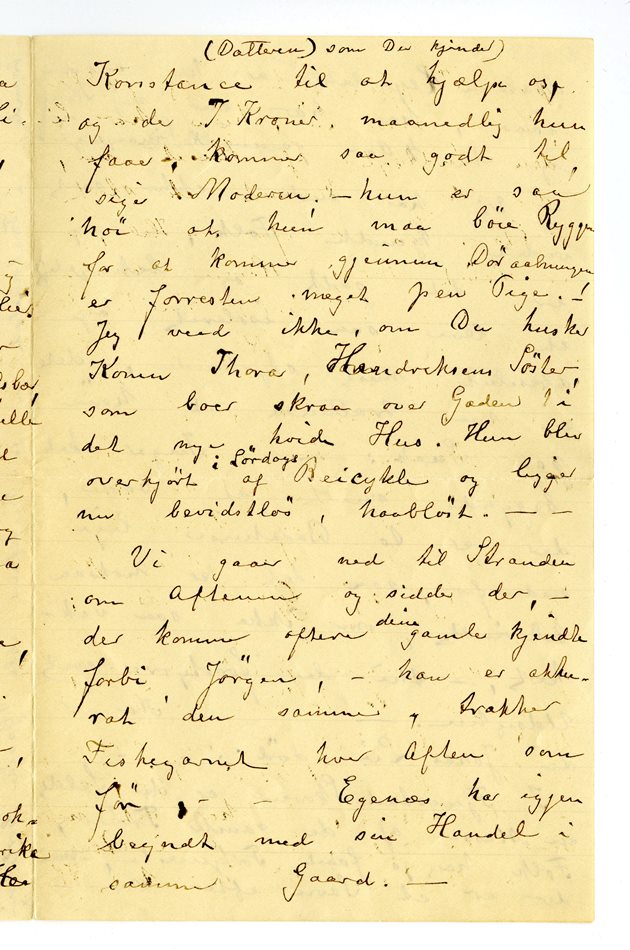 (Datteren) som Du kjender)
Konstance til at hjælpe os,
og de 7 Kroner maanedlig hun
faaer, kommer saa godt til,
siger Moderen. – hun er saa
höi at hun maa böie Ryggen
for at komme gjennem Döraabningen
er forresten meget pen Pige. –!
Jeg veed ikke, om Du husker
Konen Thora, Hendriksens Söster,
som boer skraa over Gaden i
det nye hvide Hus. Hun blev
overkjört i Lördags af Beicykle og ligger
nu bevidstlös, haablöst. – –
Vi gaaer ned til Stranden
om Aftenen og sidder der, –
der kommer oftere dine gamle kjendte
forbi Jörgen, – han er akku-
rat den samme, trækker
Fiskegarnet hver Aften som
för. – – Egenæs har igjen
begyndt med sin Handel i
samme Gaard. –